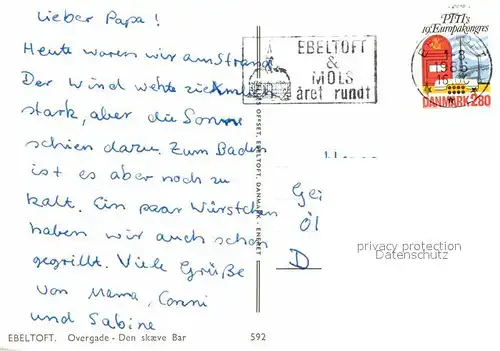 Lieber Papa!
Heute waren wir am Strand.
Der Wind wehte ziemlich
stark, aber die Sonne
schien dazu. Zum Baden
ist es aber noch zu
kalt. Ein paar Würstchen
haben wir auch schon
gegrillt. Viele Grüße
von Mama, Conni
und Sabine
EBELTOFT
&
MOLS
året rundt
PTTI's
19. Europakongres
DANMARK 280
OFFSET, EBELTOFT, DANMARK - ENERET
Herrn
Gei
Öl
D
privacy protection
Datenschutz
EBELTOFT. Overgade - Den skæve Bar 592